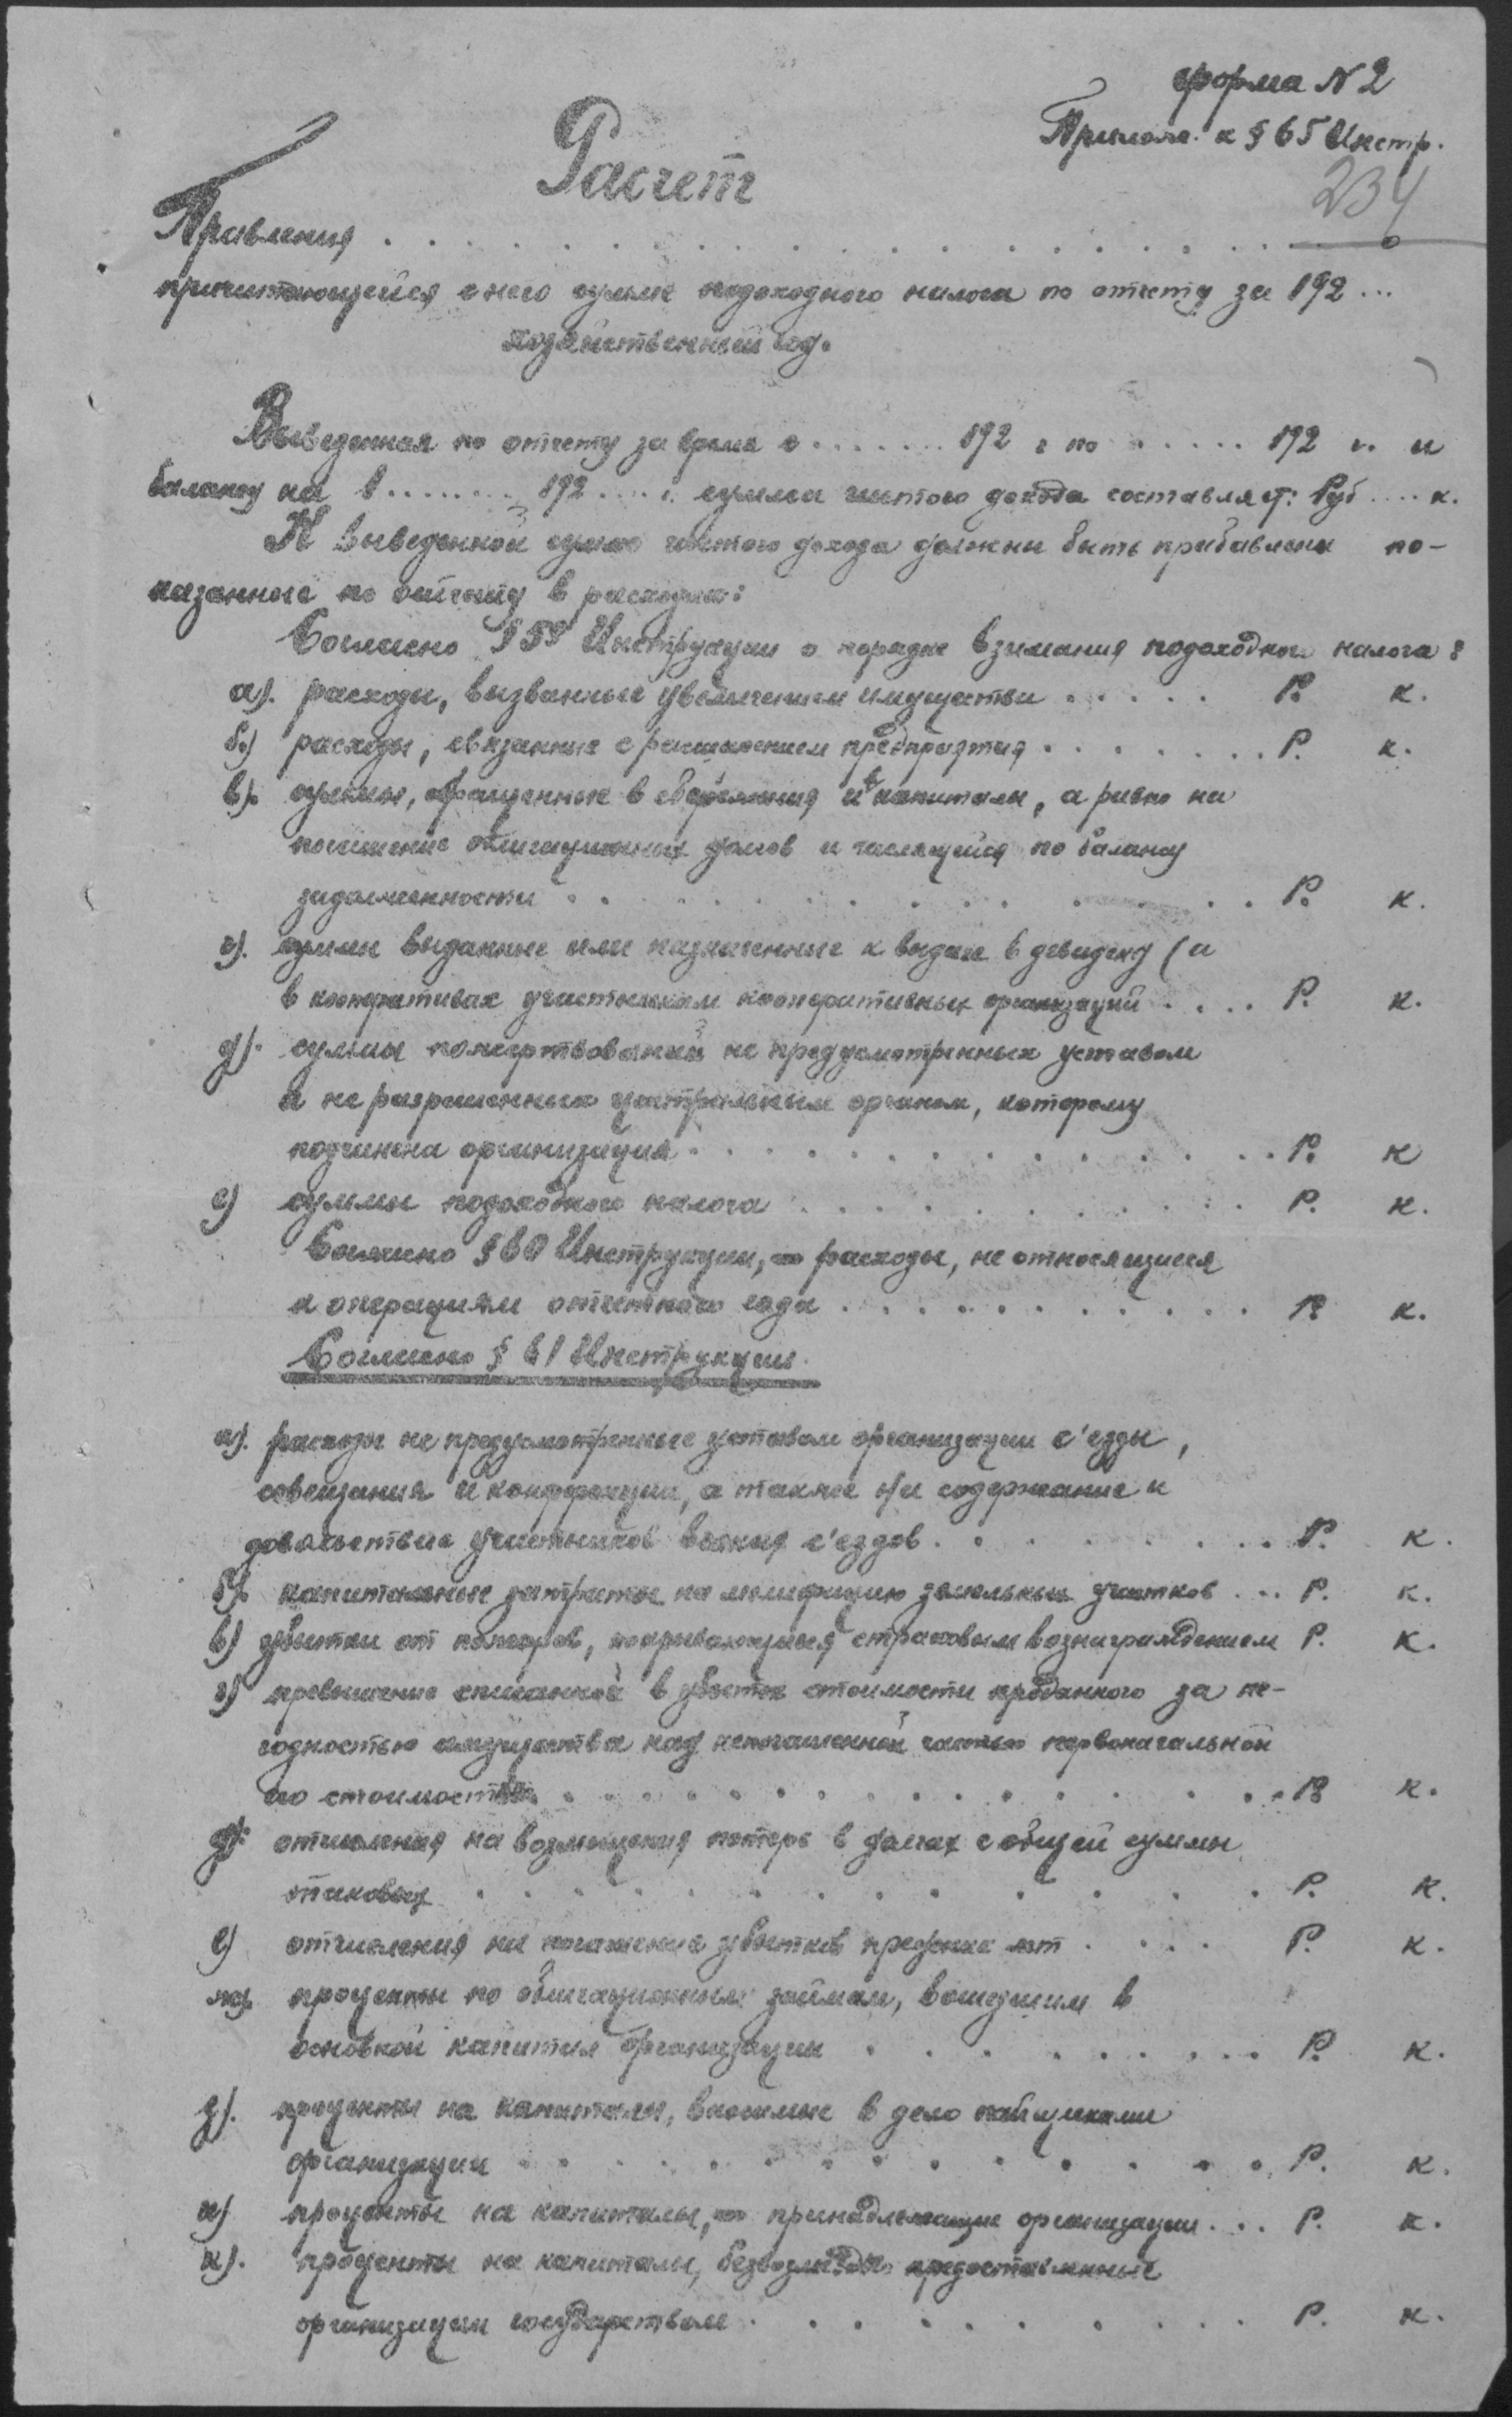 Форма N 2
Прилож. к § 65 Инстр.
234
Расчет
Правления . . . . . . . . . . . . . . . . . .
причитающейся с него сумме подоходного налога по отчету за 192 ...
хозяйственный год.
Выведенная по отчету за время с . . . . . . . 192 г по . . . . . . 192 г. и
балансу на 1 . . . . . . . 192 .... г. сумма чистого дохода составляет: Руб .... к.
К выведенной сумме чистого дохода должны быть прибавлены по-
казанные по отчету в расходах:
Согласно § 59 Инструкции о порядке взимания подоходного налога:
а). расходы, вызванные увеличением имущества . . . . . Р. к.
б.) расходы, связанные с расширением предприятия . . . . . . . Р. к.
в). суммы, обращенные в капиталы, а равно на
погашение облигационных займов и числящейся по балансу
задолженности . . . . . . . . . . . . . Р. к.
г). суммы выданные или назначенные к выдаче в дивиденд (а
в кооперативах участникам кооперативных организаций . . . . Р. к.
д). суммы пожертвований не предусмотренных уставом
и не разрешенных центральным органом, которому
подчинена организация . . . . . . . . . . . . . Р. к
е) суммы подоходного налога . . . . . . . . . . . Р. к.
Согласно § 60 Инструкции, расходы, не относящиеся
к операциям отчетного года . . . . . . . . . . . . Р. к.
Согласно § 61 Инструкции.
а). расходы не предусмотренные уставом организации с'езды,
совещания и конференции, а также на содержание и
довольствие участников с'ездов . . . . . . . . Р. к.
б). капитальные затраты на мелиорацию земельных участков ... Р. к.
в) убытки от пожаров, покрывающиеся страховым вознаграждением Р. к.
г) превышение списанной в убыток стоимости проданного за не-
годностью имущества над непогашенной частью первоначальной
его стоимости . . . . . . . . . . . . . . Р. к.
д). отчисления на возмещения потерь в долгах с общей суммы
таковых . . . . . . . . . . . . . . Р. к.
е) отчисления на погашение убытков прежних лет . . . . Р. к.
ж). проценты по облигационным займам, вошедшим в
основной капитал организации . . . . . . . . . Р. к.
з). проценты на капиталы, вносимые в дело пайщиками
организации . . . . . . . . . . . . . . Р. к.
и) проценты на капиталы, принадлежащие организации ... Р. к.
к). проценты на капиталы, безвозмездно предоставленные
организации государством . . . . . . . . . . Р. к.